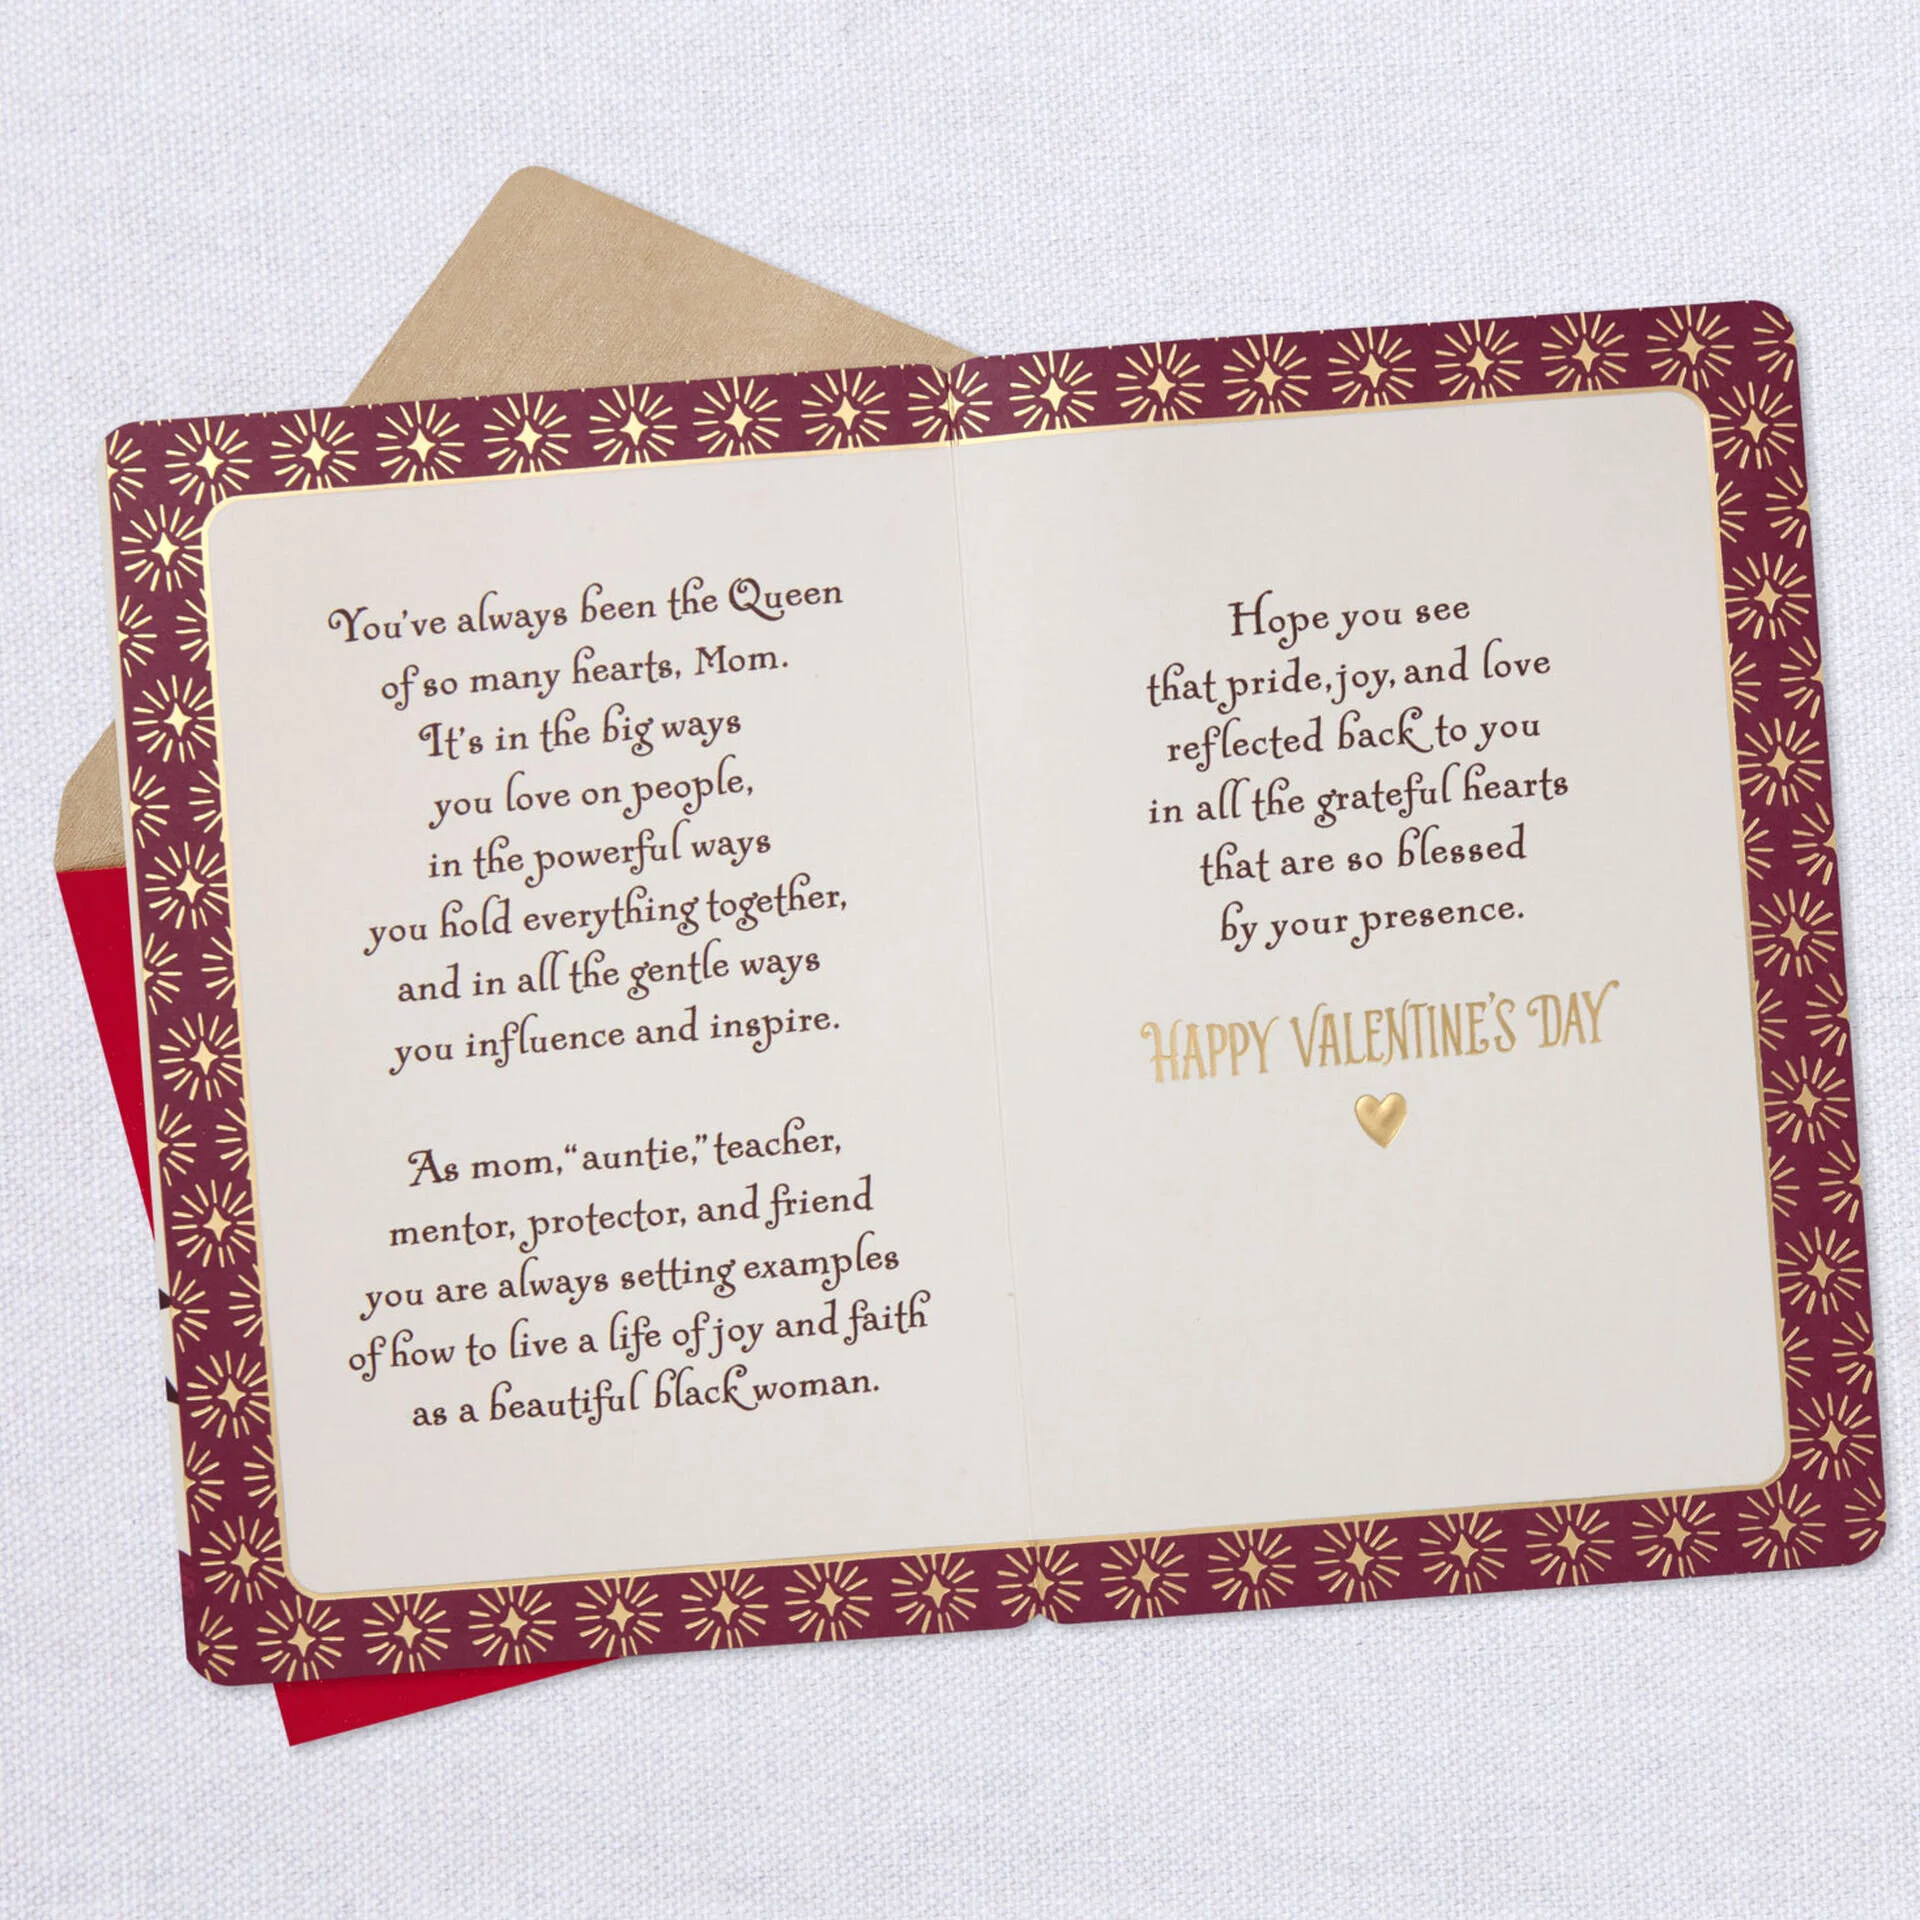 You've always been the Queen
of so many hearts, Mom.
It's in the big ways
you love on people,
in the powerful ways
you hold everything together,
and in all the gentle ways
you influence and inspire.
As mom, “auntie,” teacher,
mentor, protector, and friend
you are always setting examples
of how to live a life of joy and faith
as a beautiful black woman.
Hope you see
that pride, joy, and love
reflected back to you
in all the grateful hearts
that are so blessed
by your presence.
HAPPY VALENTINE'S DAY